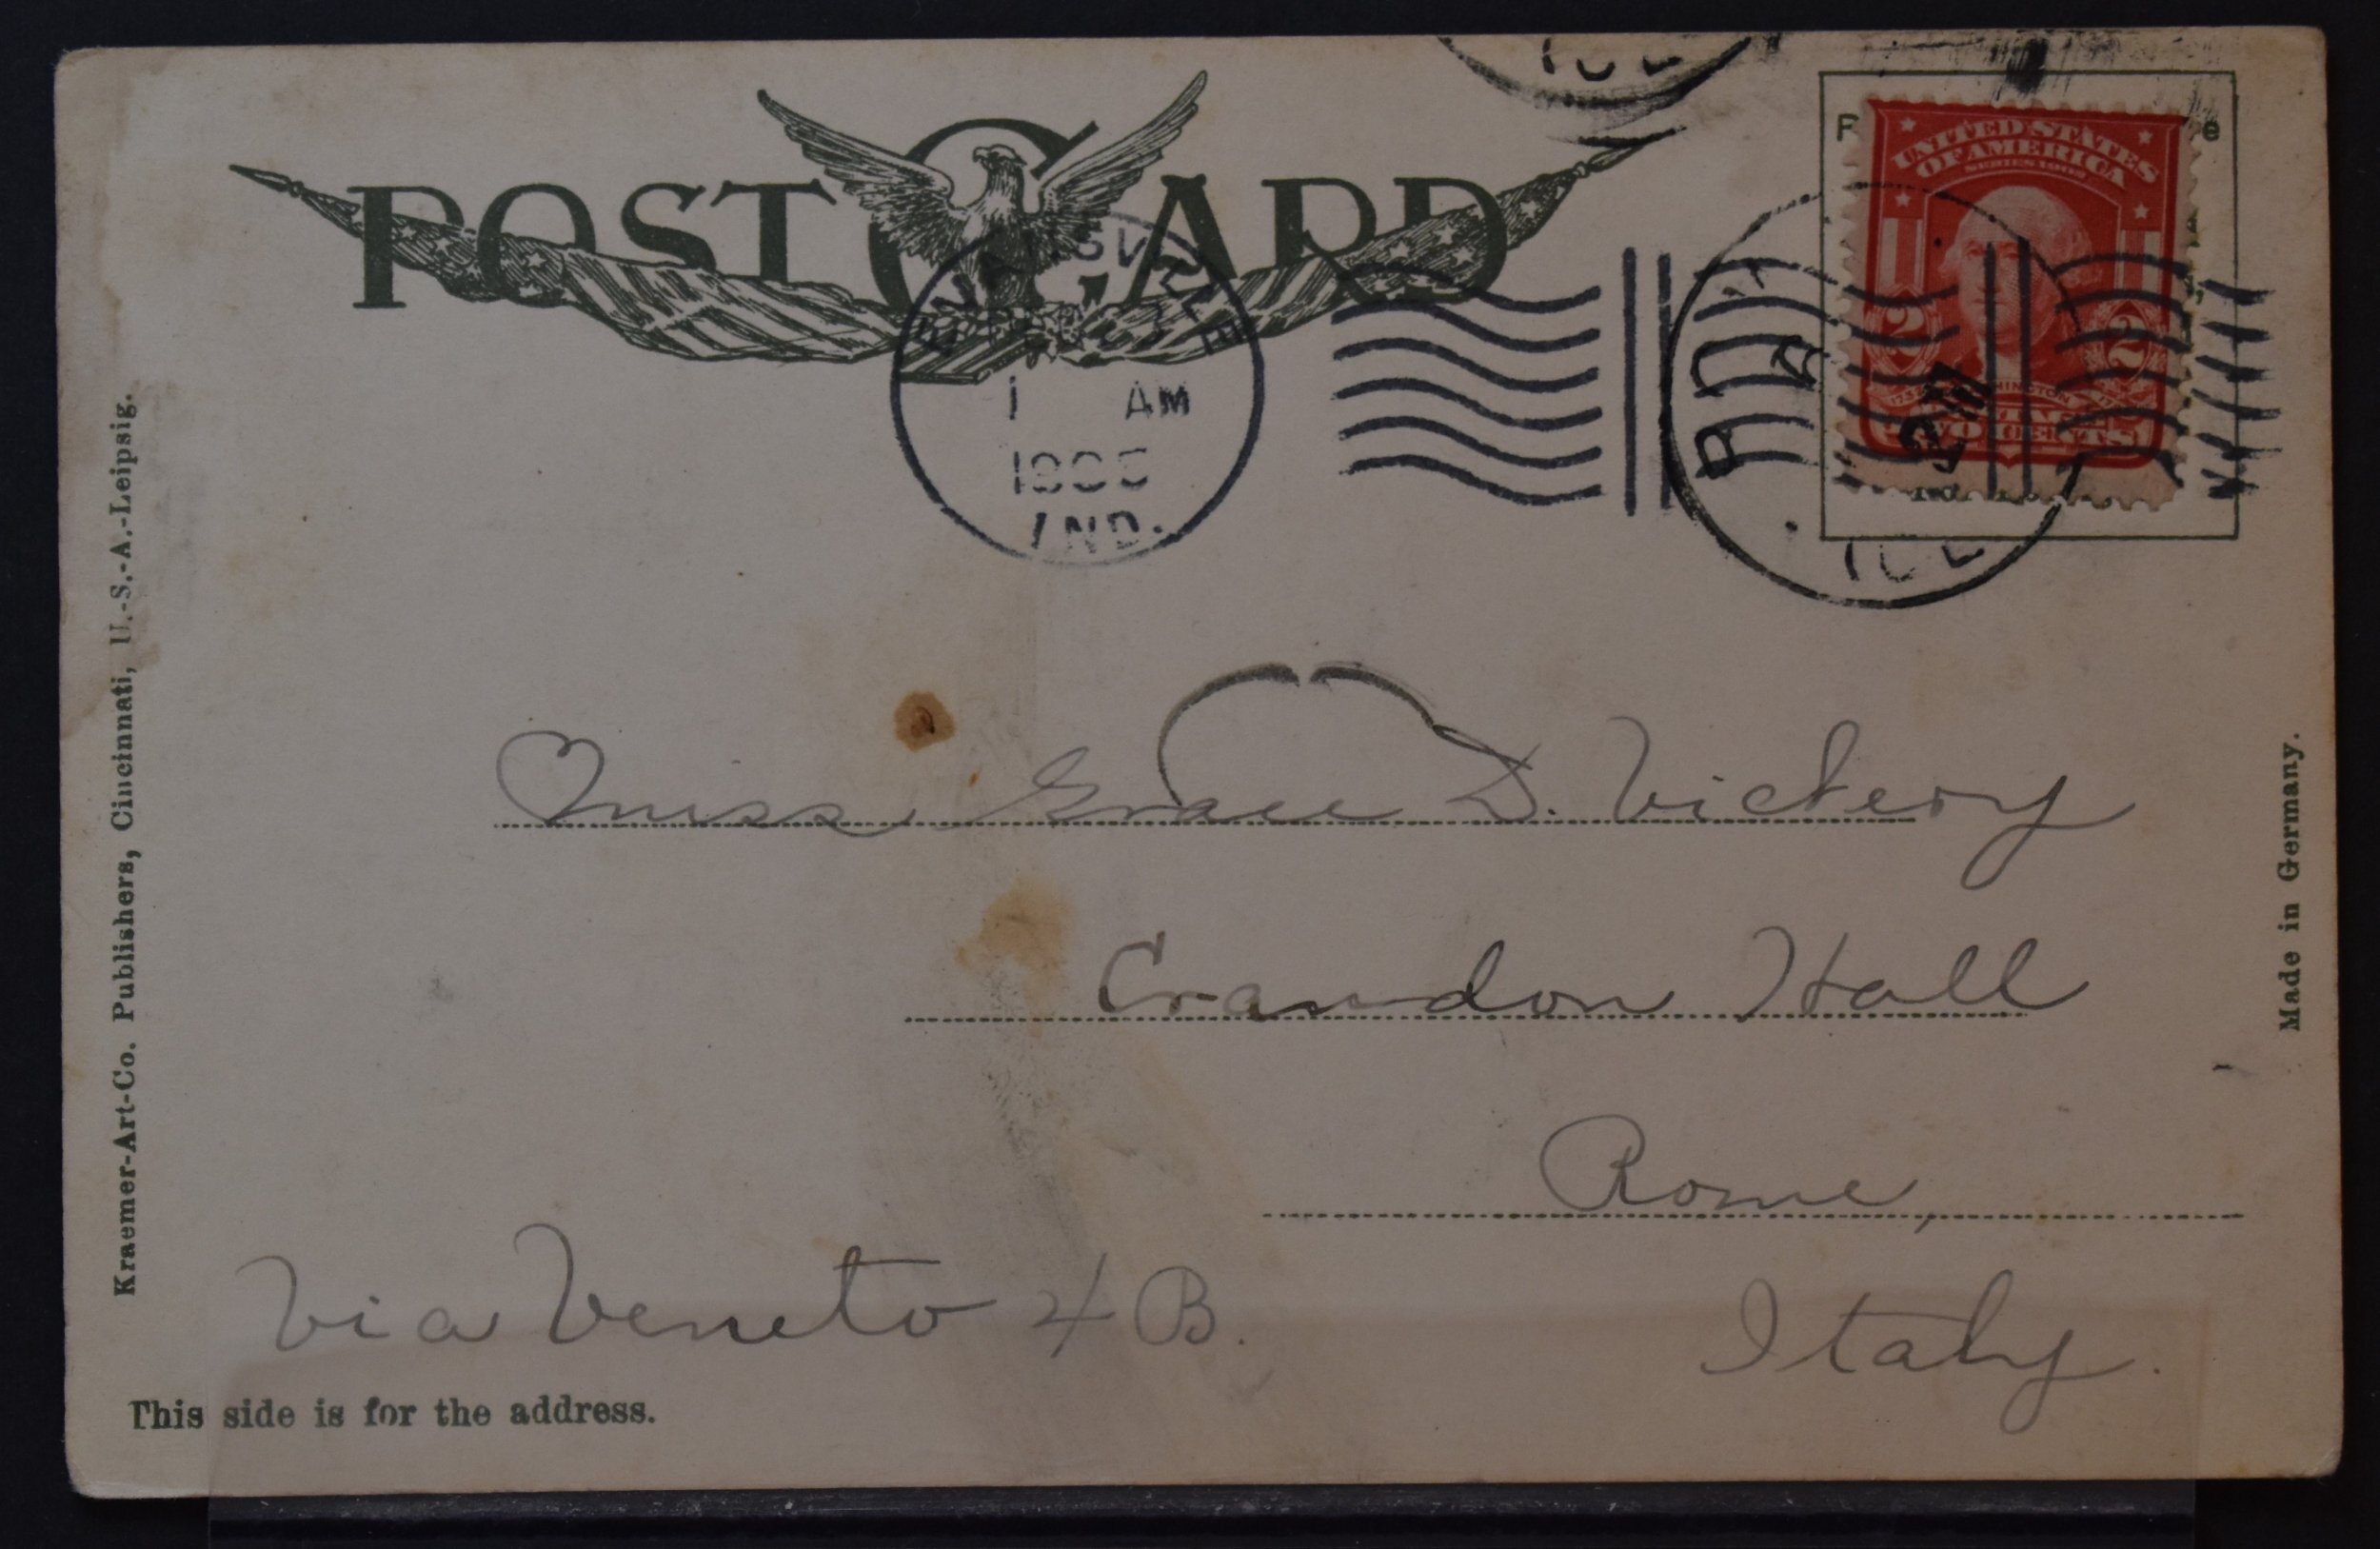 POST CARD
UNITED STATES
OF AMERICA
SERIES 1902
2 2
TWO CENTS
EVANSVILLE
FEB 23
1 AM
IND.
Miss Grace D. Vickery
Crandon Hall
Rome,
Via Veneto 4 B.
Italy.
This side is for the address.
Kraemer-Art-Co. Publishers, Cincinnati, U.-S.-A.-Leipsig.
Made in Germany.